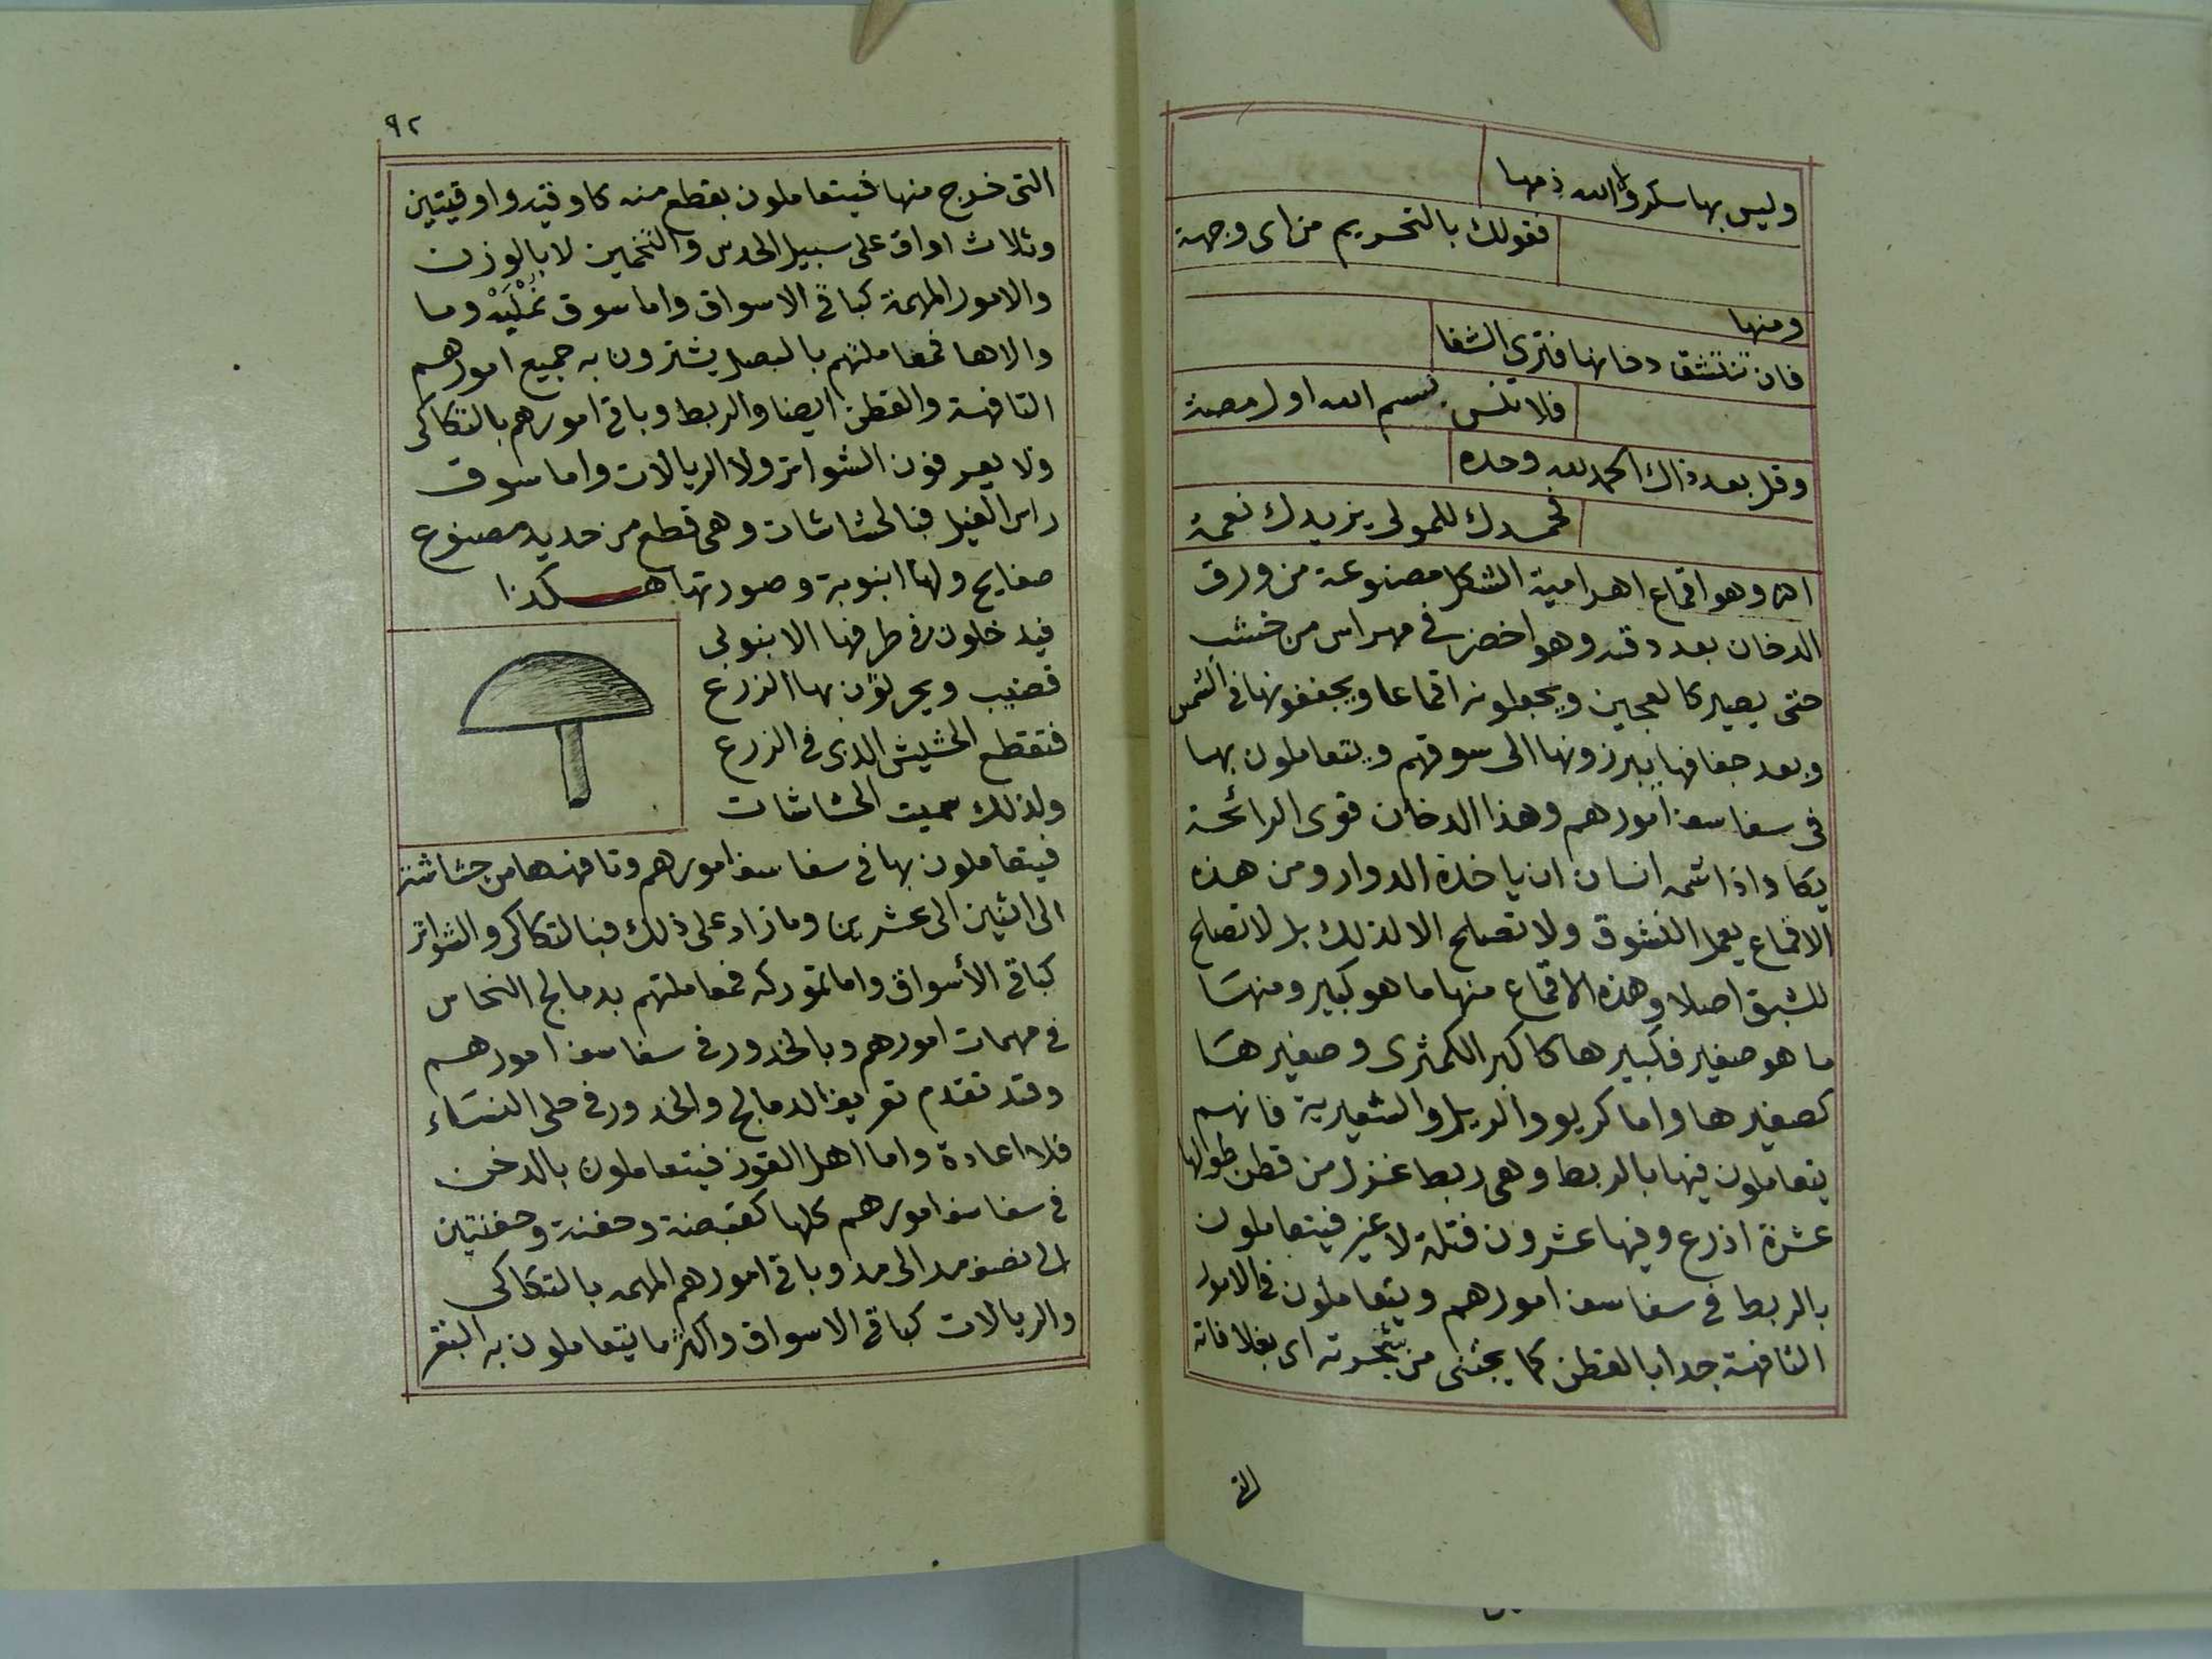 وليس بها سكر ولا الله ذمها
فقولك بالتحريم من اى وجهة
ومنها
فان تنتشق دخانها فترى الشفا
فلا تنس بسم الله اول مصة
وقل بعد ذاك الحمد لله وحده
فحمدك للمولى يزيدك نعمة
اه وهو اقماع اهرامية الشكل مصنوعة من ورق
الدخان بعد دقه وهو اخضر فى مهراس من خشب
حتى يصير كالعجين ويجعلونه اقماعا ويجففونها فى الشمس
وبعد جفافها يبرزونها الى سوقهم ويتعاملون بها
فى سفاسف امورهم وهذا الدخان قوى الرائحة
يكاد اذا شمه انسان ان ياخذه الدوار ومن هذه
الاقماع يعمل النشوق ولا تصلح الا لذلك بل لا تصلح
للشبق اصلا وهذه الاقماع منها ما هو كبير ومنها
ما هو صغير فكبيرها كاكبر الكمثرى وصغيرها
كصغيرها واما كريو والريل والشعيرية فانهم
يتعاملون فيها بالربط وهى ربط غزل من قطن طولها
عشرة اذرع وفيها عشرون فتلة لا غير فيتعاملون
بالربط فى سفاسف امورهم ويتعاملون فى الامور
التافهة جدا بالقطن كما يجتنى من شجرته اى بغلافاته
التى
٩٢
التى خرج منها فيتعاملون بقطع منه كاوقيه واوقيتين
وثلاث اواق على سبيل الحدس والتخمين لا بالوزن
والامور المهمة كباقى الاسواق واما سوق نمليه وما
والاها فمعاملتهم بالبصل يشترون به جميع امورهم
التافهة والقطن ايضا والربط وباقى امورهم بالتكاكى
ولا يعرفون الشواتر ولا الريالات واما سوق
راس الفيل فبالحشاشات وهى قطع من حديد مصنوع
صفايح ولها انبوبة وصورتها هكذا
فيدخلون فى طرفها الانبوبى
قضيب ويحرثون بها الزرع
فتقطع الحشيش الذى فى الزرع
ولذلك سميت الحشاشات
فيتعاملون بها فى سفاسف امورهم وتافهها من حشاشة
الى اثنين الى عشرين وما زاد على ذلك فبالتكاكى والشواتر
كباقى الأسواق واما تموركه فمعاملتهم بدمالج النحاس
فى مهمات امورهم وبالخدور فى سفاسف امورهم
وقد تقدم تعريف الدمالج والخدور فى حلى النساء
فلا اعادة واما اهل القوز فيتعاملون بالدخن
فى سفاسف امورهم كلها كقبضة وحفنة وحفنتين
الى نصف مد الى مد وباقى امورهم المهمه بالتكاكى
والريالات كباقى الاسواق واكثر ما يتعاملون به البقر